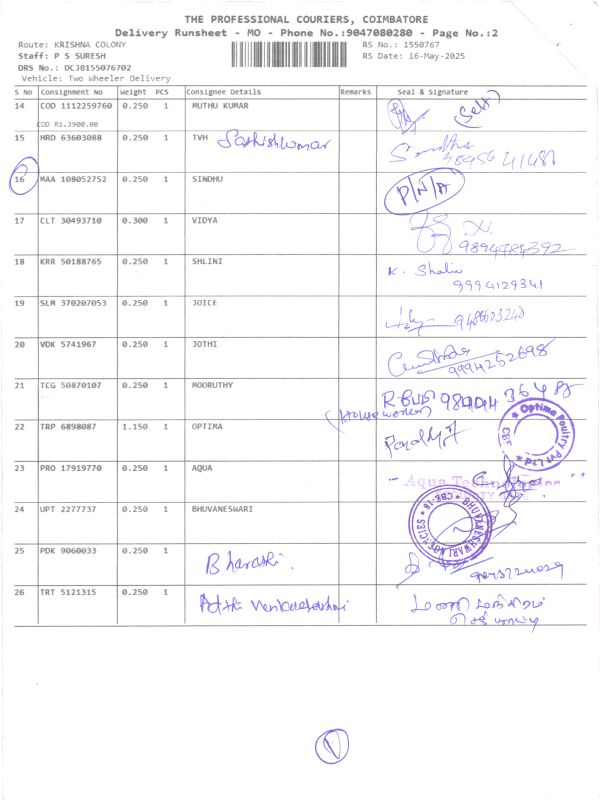 THE PROFESSIONAL COURIERS, COIMBATORE
Delivery Runsheet - MO - Phone No.:9047080280 - Page No.:2
Route: KRISHNA COLONY RS No.: 1550767
Staff: P S SURESH RS Date: 16-May-2025
DRS No.: DCJB155076702
Vehicle: Two Wheeler Delivery
S No Consignment No Weight PCS Consignee Details Remarks Seal & Signature
14 COD 1112259760 0.250 1 MUTHU KUMAR (Self)
COD RS.3900.00
15 HRD 63603088 0.250 1 TVH Sathishkumar
16 MAA 108052752 0.250 1 SINDHU P/N/A
17 CLT 30493710 0.300 1 VIDYA
9894784392
18 KRR 50188765 0.250 1 SHLINI K. Shalini
9994129341
19 SLM 370207053 0.250 1 JOICE
20 VDK 5741967 0.250 1 JOTHI
9994252698
21 TCG 50870107 0.250 1 MOORUTHY
(House worker)
22 TRP 6898087 1.150 1 OPTIMA Optima Poultry Pvt Ltd CBE
23 PRO 17919770 0.250 1 AQUA Aqua Techno
24 UPT 2277737 0.250 1 BHUVANESWARI BHUVANESHWARI AGENCIES CBE-18
25 PDK 9060033 0.250 1 Bharathi.
26 TRT 5121315 0.250 1